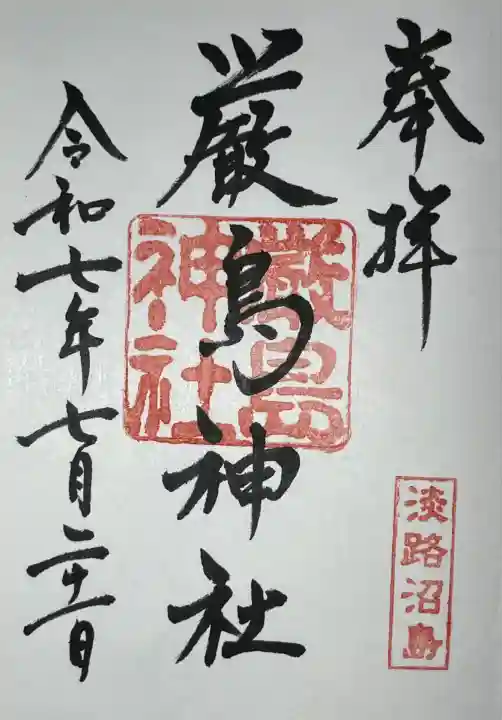 奉拝
淡路沼島
厳島神社
厳島神社
令和七年七月二十一日